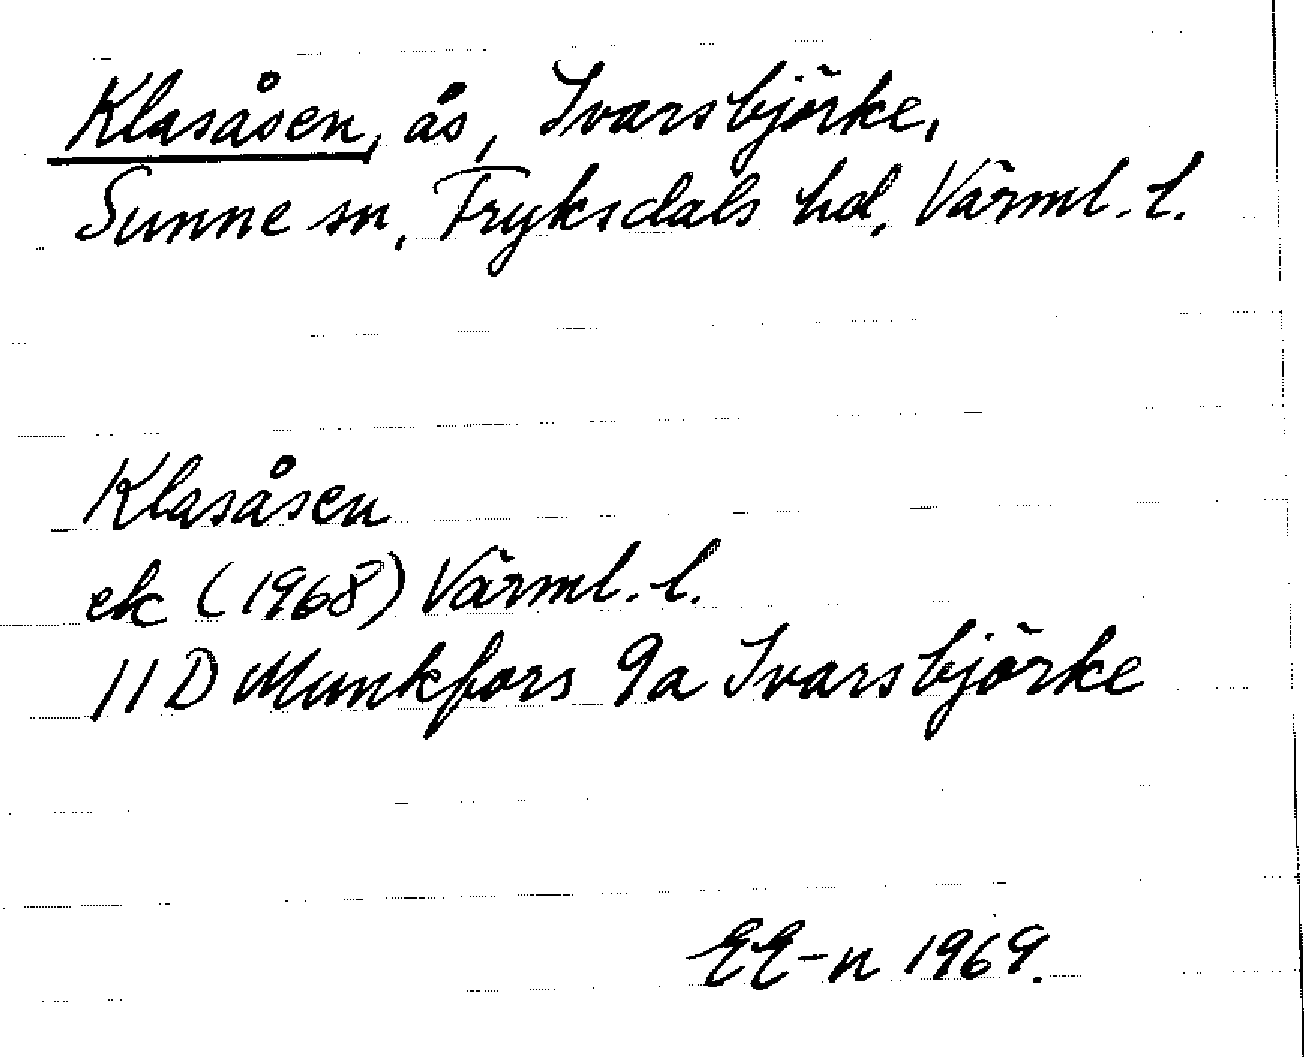 Klasåsen, ås, Ivarsbjörke,
Sunne sn, Fryksdals hd, Värml. l.
Klasåsen
ek (1968) Värml. l.
11 D Munkfors 9a Ivarsbjörke
EE-n 1969.